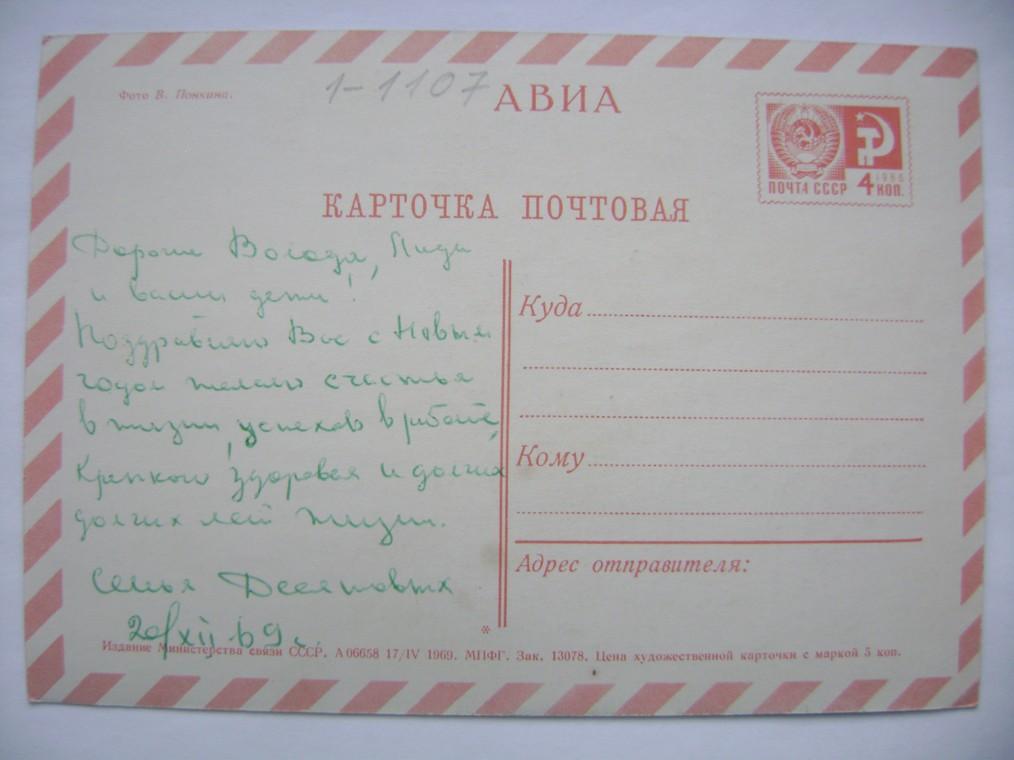 Фото В. Понкина.
1-1107
АВИА
1966
ПОЧТА СССР 4 КОП.
КАРТОЧКА ПОЧТОВАЯ
Дорогие Володя, Лида
и ваши дети!
Поздравляю Вас с Новым
годом желаю счастья
в жизни, успехов в работе,
Крепкого здоровья и долгих
долгих лет жизни.
Семья
20/XII 69 г.
Куда
Кому
Адрес отправителя:
*
Издание Министерства связи СССР. А 06658 17/IV 1969. МПФГ. Зак. 13078. Цена художественной карточки с маркой 5 коп.